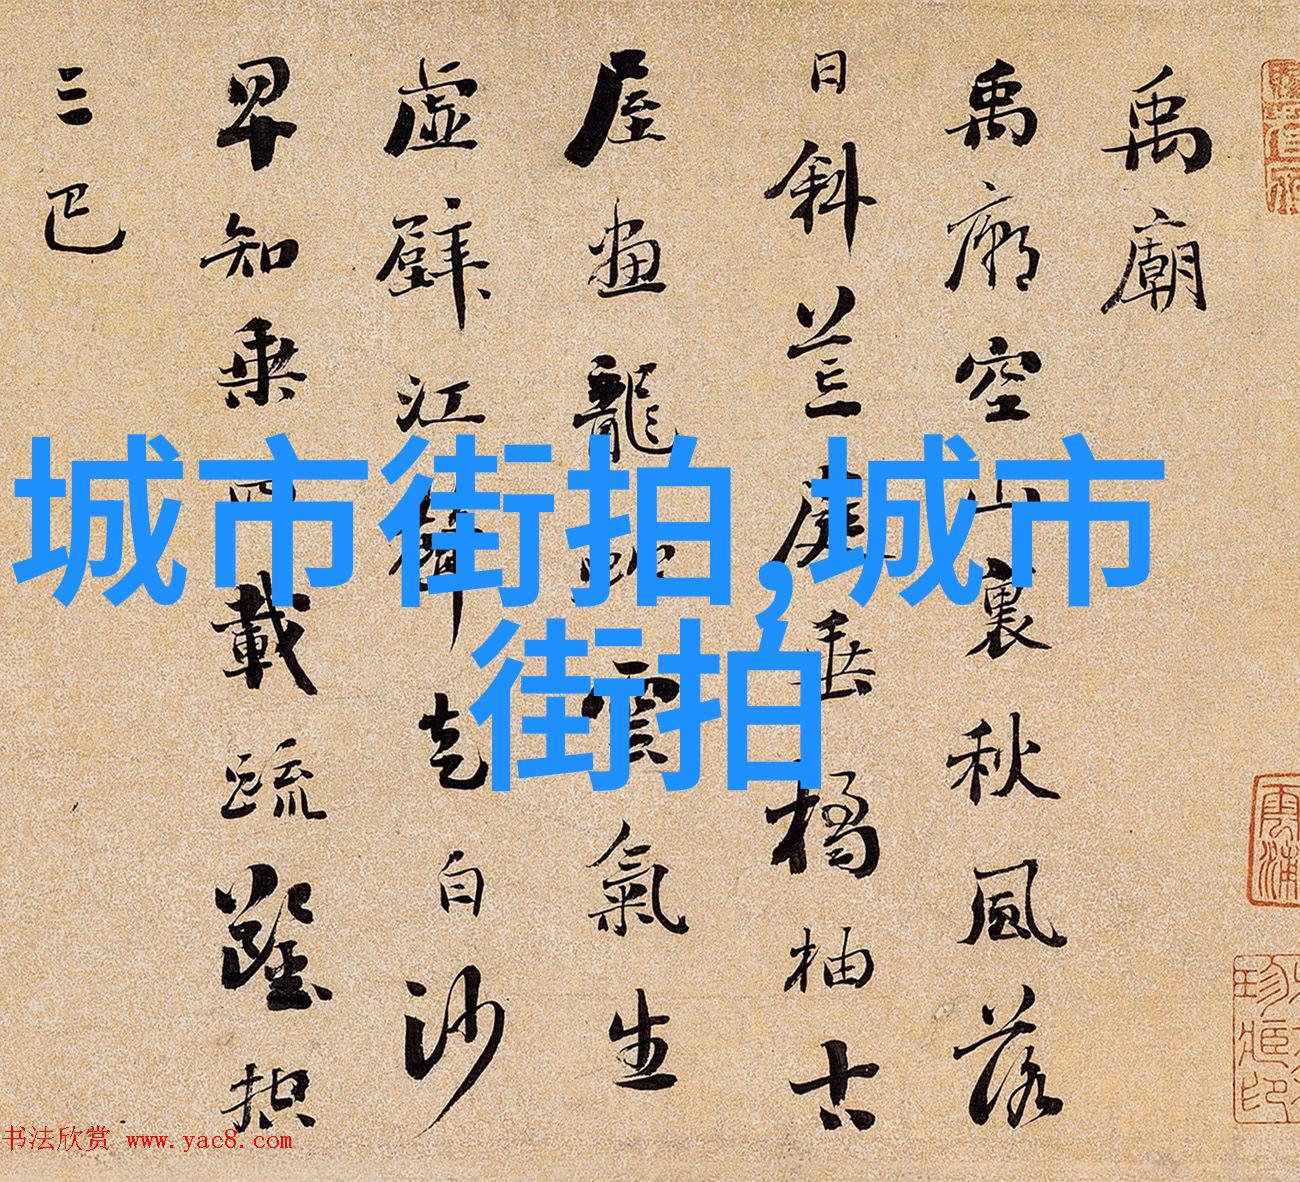 禹廟
禹廟空山裏秋風落
日斜荒庭垂橘柚古
屋畫龍蛇雲氣生
虛壁江聲走白沙
早知乘四載疏鑿控
三巴
城市街拍,城市
街拍
书法欣赏 www.yac8.com